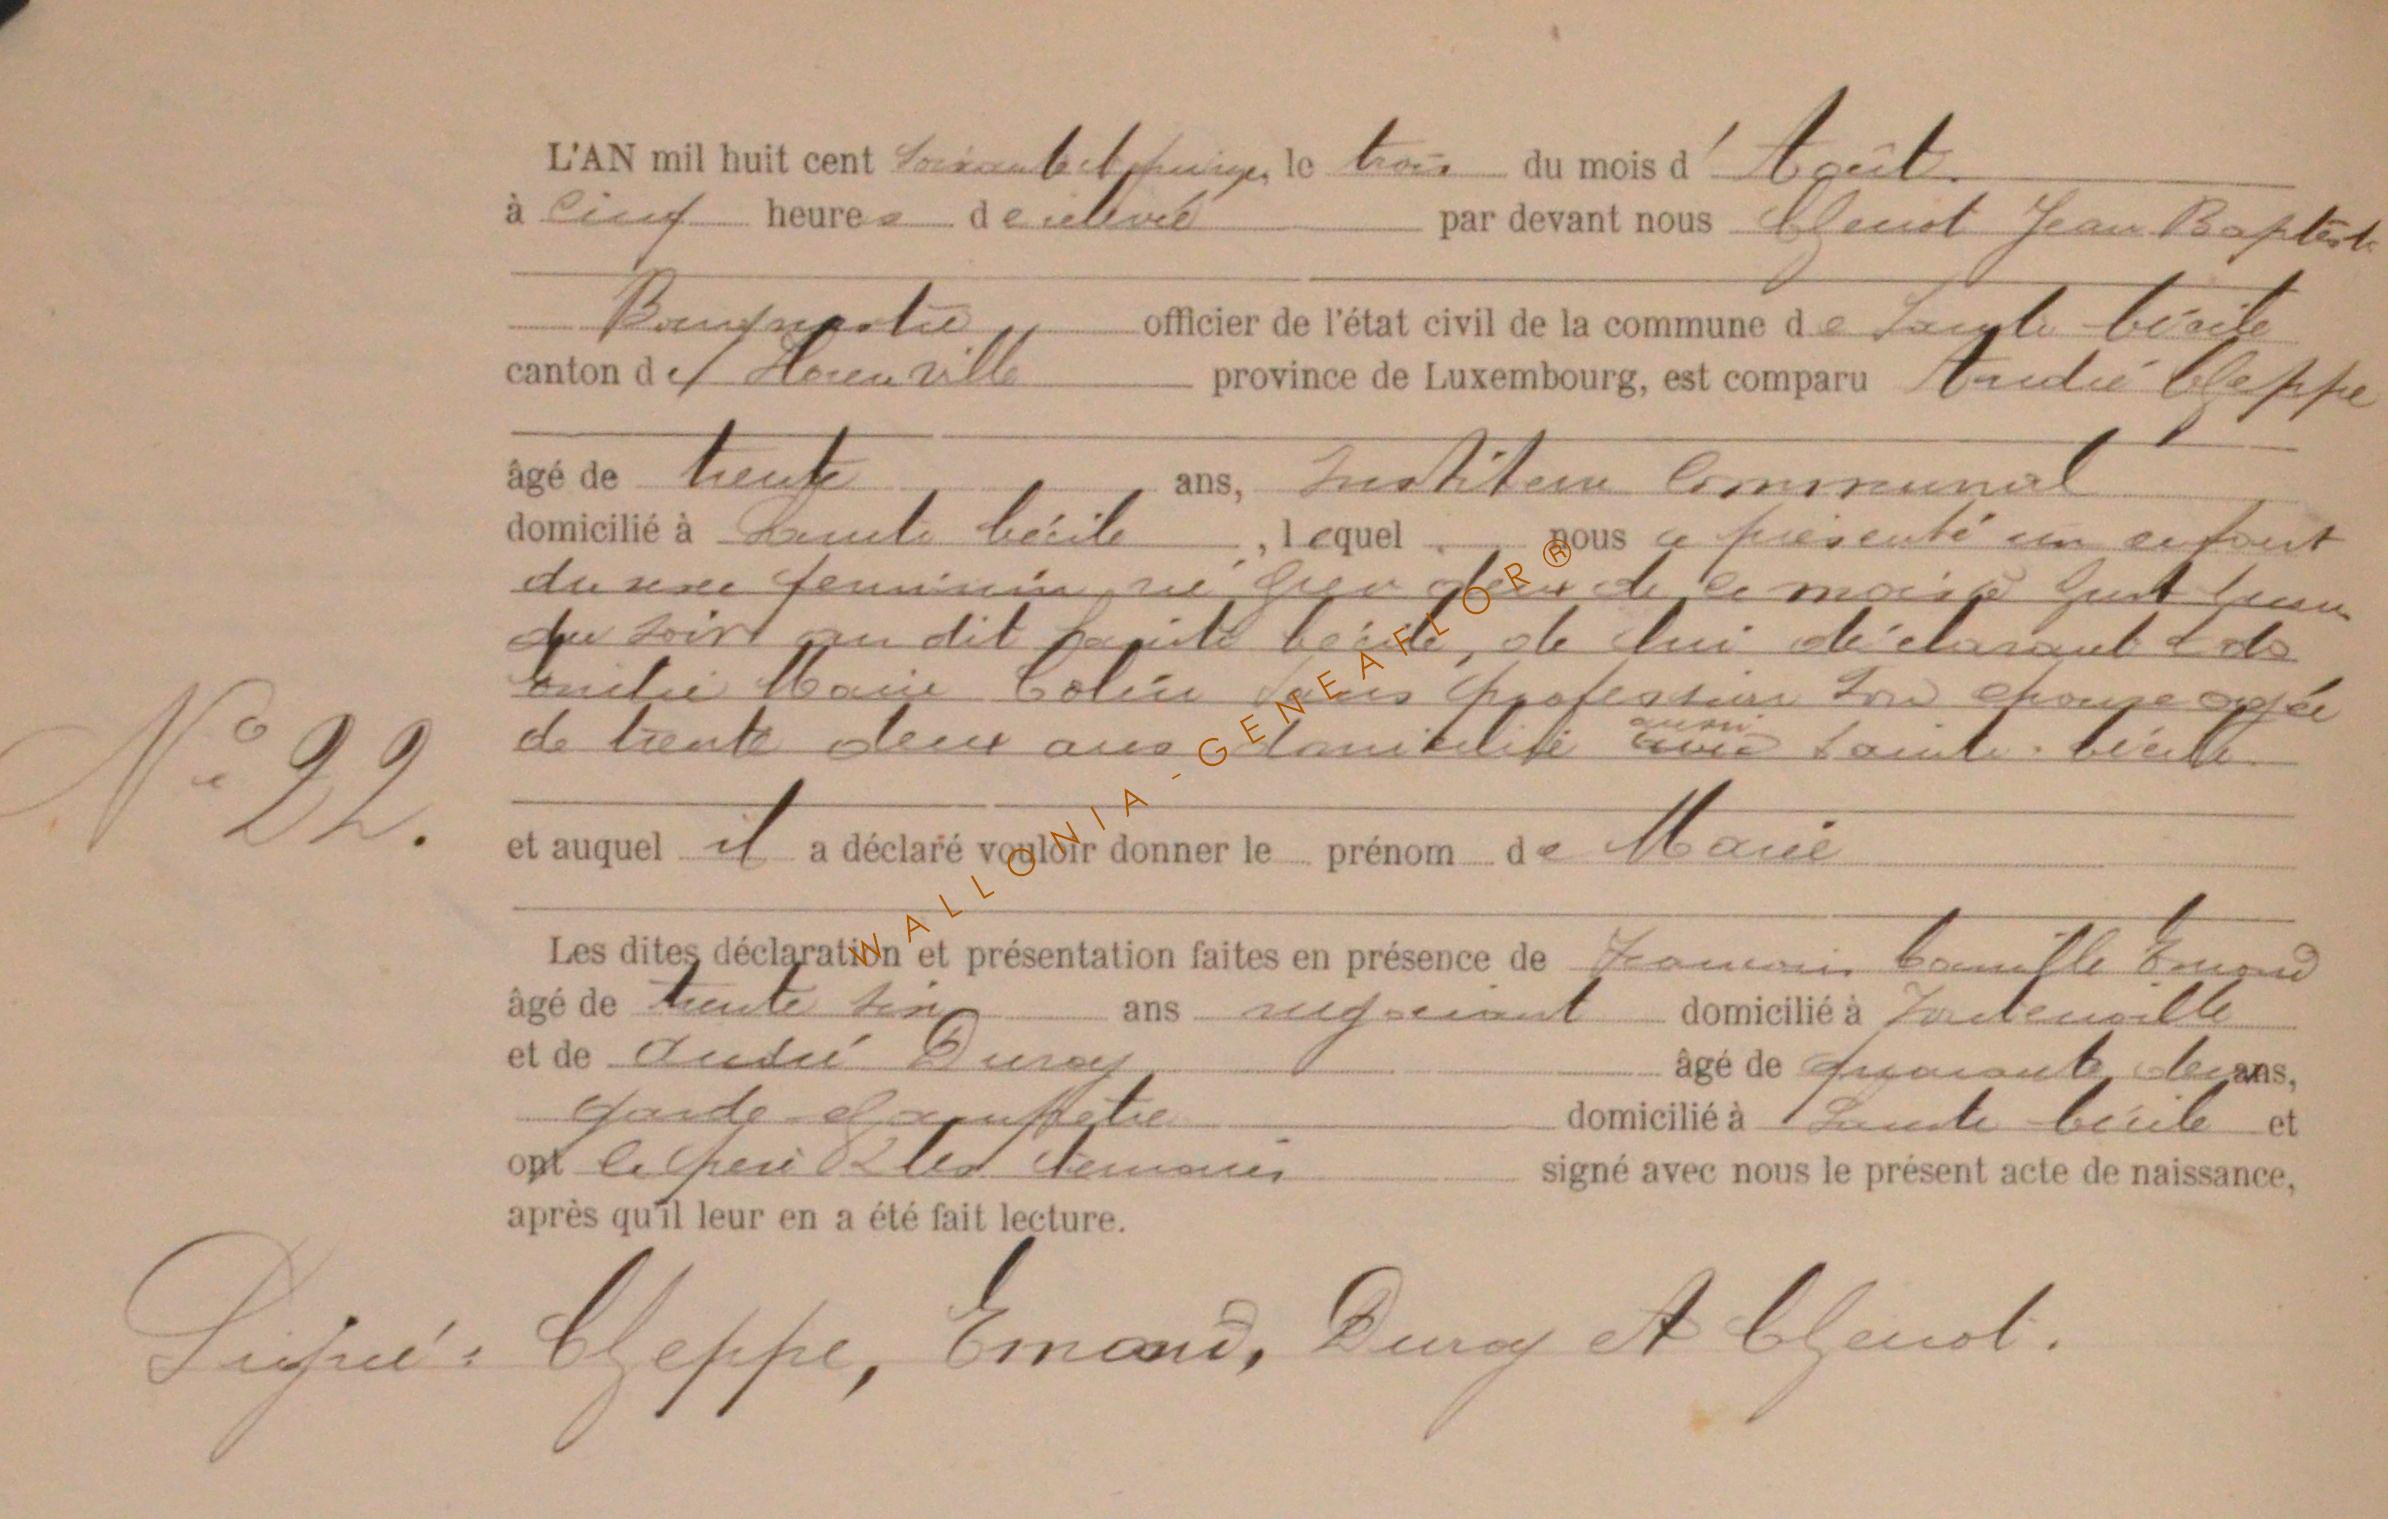 L'AN mil huit cent soixante et quinze, le trois du mois d'Août.
à cinq heures de relevée par devant nous Chenot Jean Baptiste
Bourgmestre officier de l'état civil de la commune de Sainte Cécile
canton de Florenville province de Luxembourg, est comparu André Cheppe
âgé de trente ans, Instituteur Communal
domicilié à Sainte Cécile, lequel nous a présenté un enfant
du sexe féminin, né hier deux de ce mois à huit heures
du soir au dit Sainte Cécile, de lui déclarant & de
Marie Colin sans profession son épouse agée
de trente deux ans domicilié aussi Sainte-Cécile.
N° 22.
et auquel il a déclaré vouloir donner le prénom de Marie
Les dites déclaration et présentation faites en présence de François Camille Emond
âgé de trente six ans négociant domicilié à Fontenoille
et de André Duroy âgé de quarante deux ans,
garde champêtre domicilié à Sainte Cécile et
ont le père & les témoins signé avec nous le présent acte de naissance,
après qu'il leur en a été fait lecture.
Signé: Cheppe, Emond, Duroy et Chenot.
WALLONIA-GENEAFLOR®